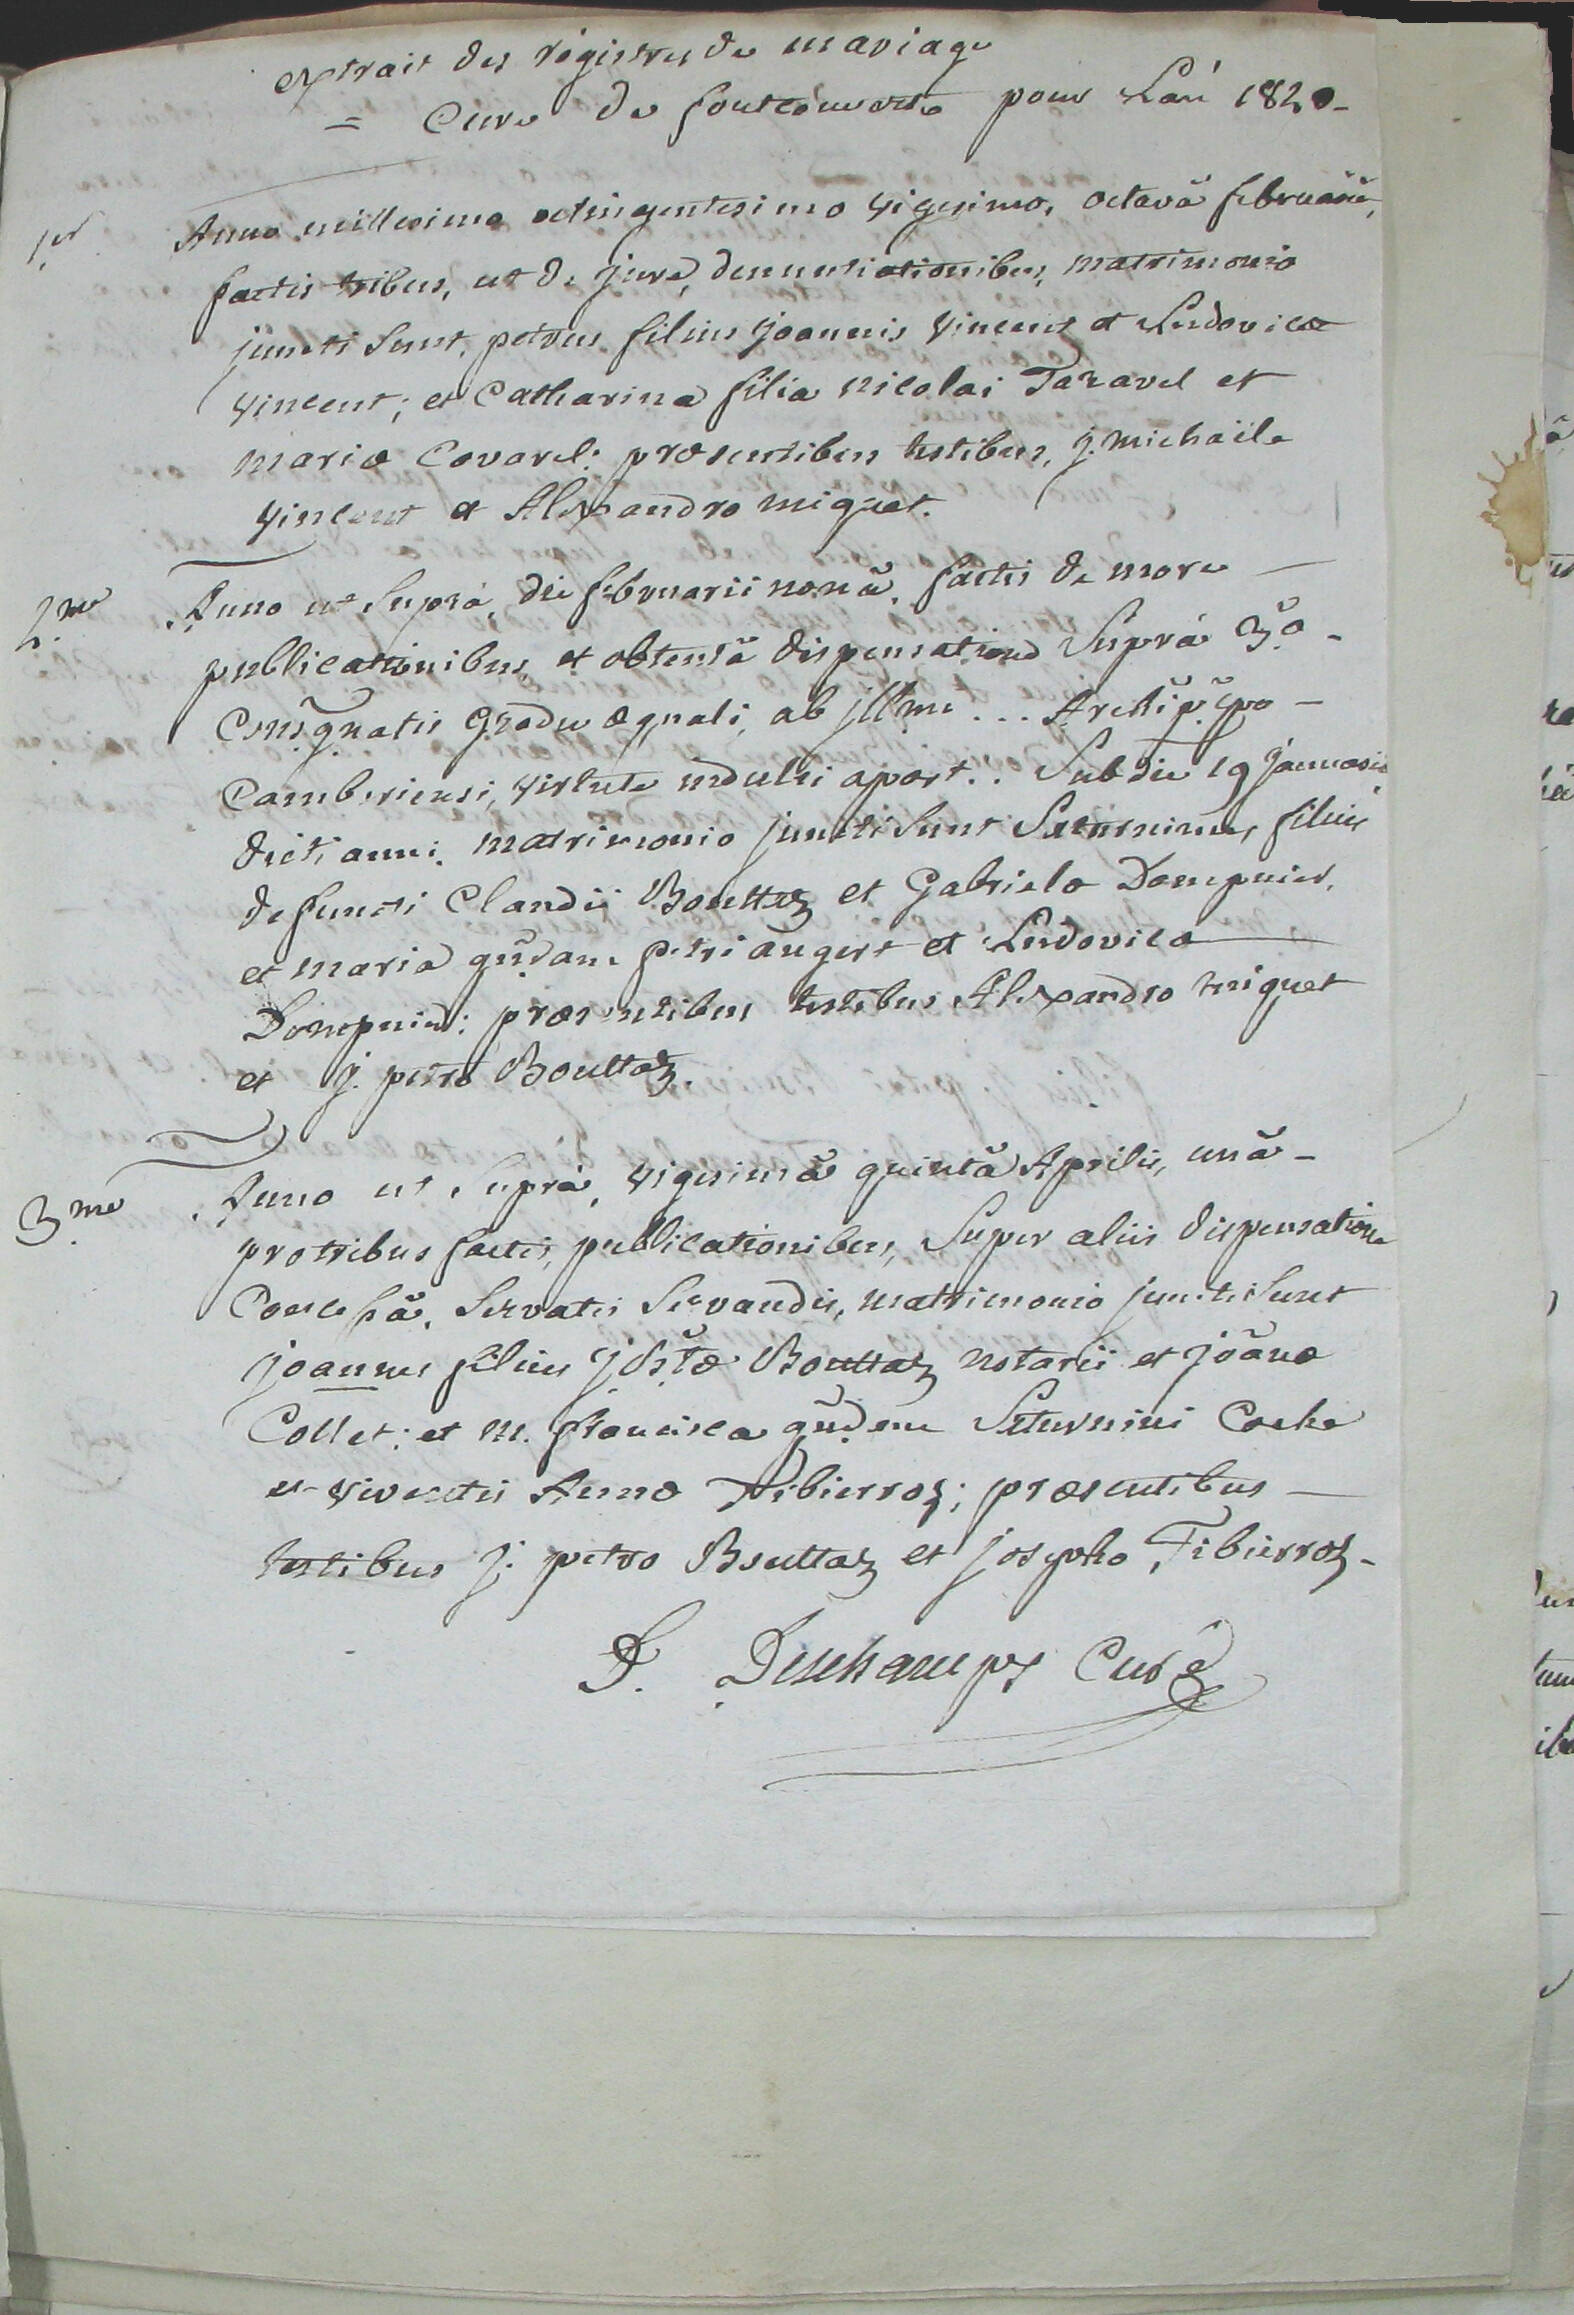 extrait des régistres de mariage
= Cure de fontcouverte pour Lan 1820-
1er Anno millesimo octingentesimo vigesimo, octavâ februarii,
factis tribus, ut de jure, denuntiationibus, matrimonio
juncti sunt, petrus filius joannis vincent et Ludovicæ
vincent; et Catharina filia nicolai Taravel et
mariæ Covarel: præsentibus testibus, j. michaële
vincent et Alexandro miquet.
2.me Anno ut Suprà, die februarii nonâ, factis de more —
publicationibus, et obtentâ dispensatione Suprà 3.o -
Consg̃natis Gradu æquali, ab jll̃me ... Archip̃ẽpo -
Camberiensi, virtute indulti apost.. Sub die 19 januarii
dicti anni, matrimonio juncti Sunt Saturninus, filius
defuncti Claudii Bouttaz et Gabrielæ Dompnier,
et maria qũdam petri augert et Ludovica —
Dompnier: præsentibus testibus Alexandro miquet
et j. petro Bouttaz.
3.me Anno ut Suprà, vigesimâ quintâ Aprilis, unâ -
pro tribus factis, publicationibus, Super aliis dispensatione
Concessâ, Servatis Servandis, matrimonio juncti Sunt
joannes filius j Bs̃tæ Bouttaz notarii et jõanæ
Collet; et m. francisca qũdem Saturnini Coche
et viventis Annæ Tibierroz; præsentibus —
testibus j. petro Bouttaz et josepho Tibierroz -
D. Deschamps Curé